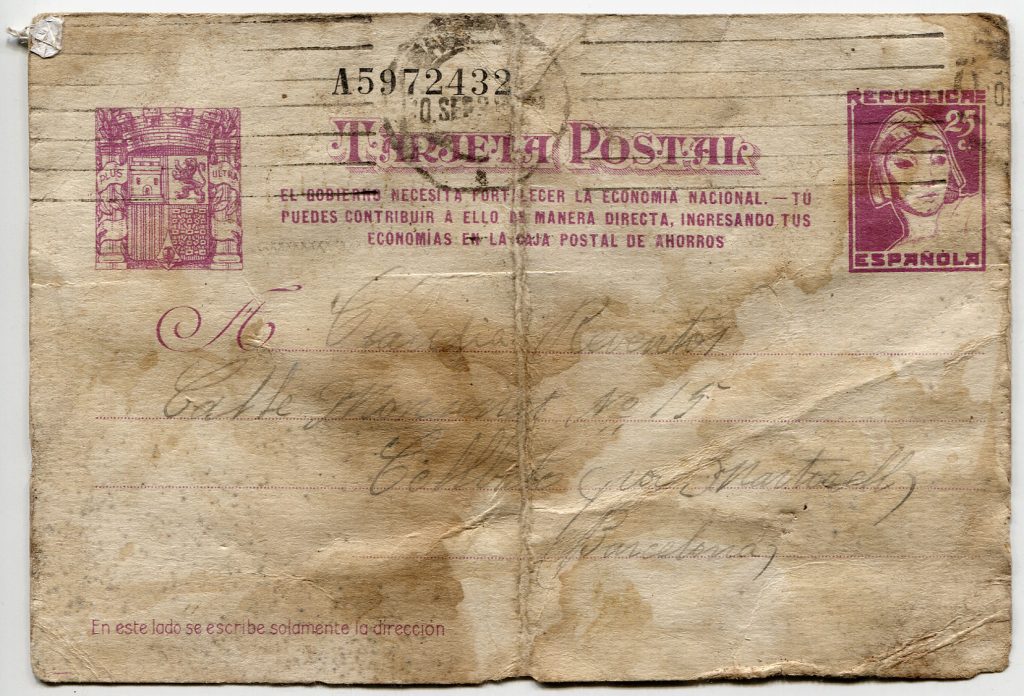 A5972432
REPÚBLICA
25
c.
TARJETA POSTAL
PLUS ULTRA
EL GOBIERNO NECESITA FORTALECER LA ECONOMÍA NACIONAL. — TÚ
PUEDES CONTRIBUIR Á ELLO DE MANERA DIRECTA, INGRESANDO TUS
ECONOMÍAS EN LA CAJA POSTAL DE AHORROS
ESPAÑOLA
A Reventós
Calle nº 15
por Martorell,
Barcelona,
En este lado se escribe solamente la dirección